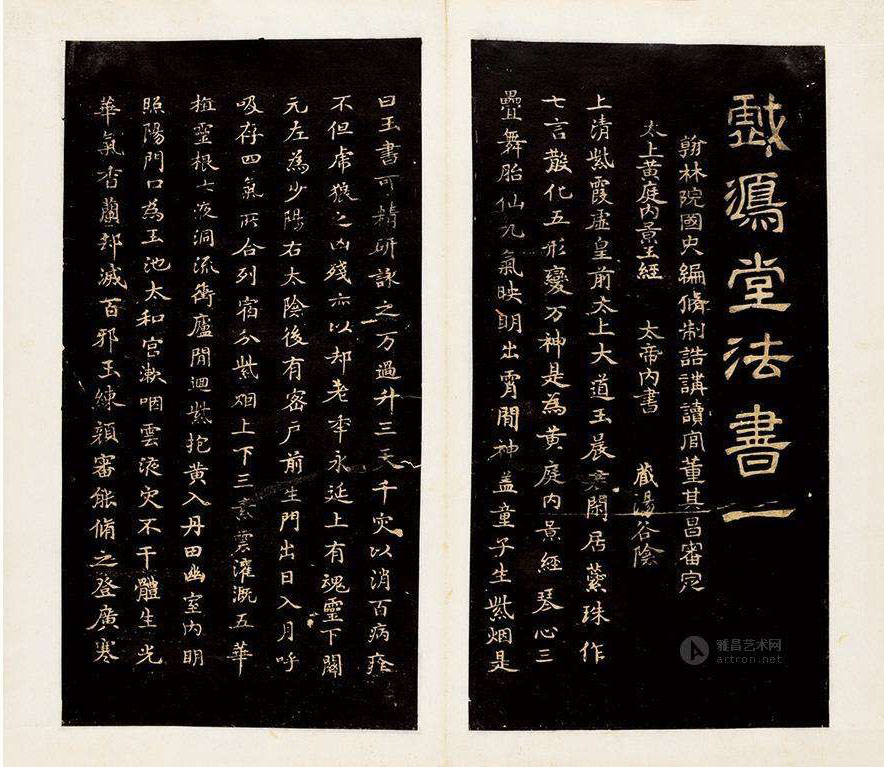 戲鴻堂法書一
翰林院國史編脩制誥講讀官董其昌審定
太上黃庭內景玉經 太帝內書 藏湯谷陰
上清紫霞虛皇前太上大道玉晨君閑居蘂珠作
七言散化五形變万神是為黃庭內景經 琴心三
疊舞胎仙九氣映明出霄間神盖童子生紫烟是
曰玉書可精研詠之万過升三天千灾以消百病痊
不但虎狼之凶殘亦以却老年永延上有魂靈下關
元左為少陽右太陰後有密户前生門出日入月呼
吸存四氣所合列宿分紫烟上下三素雲灌溉五華
植靈根七液洞流衝廬間迴紫抱黃入丹田幽室內明
照陽門口為玉池太和宮漱咽雲液灾不干體生光
華氣香蘭却滅百邪玉練顏審能脩之登廣寒
雅昌艺术网
artron.net